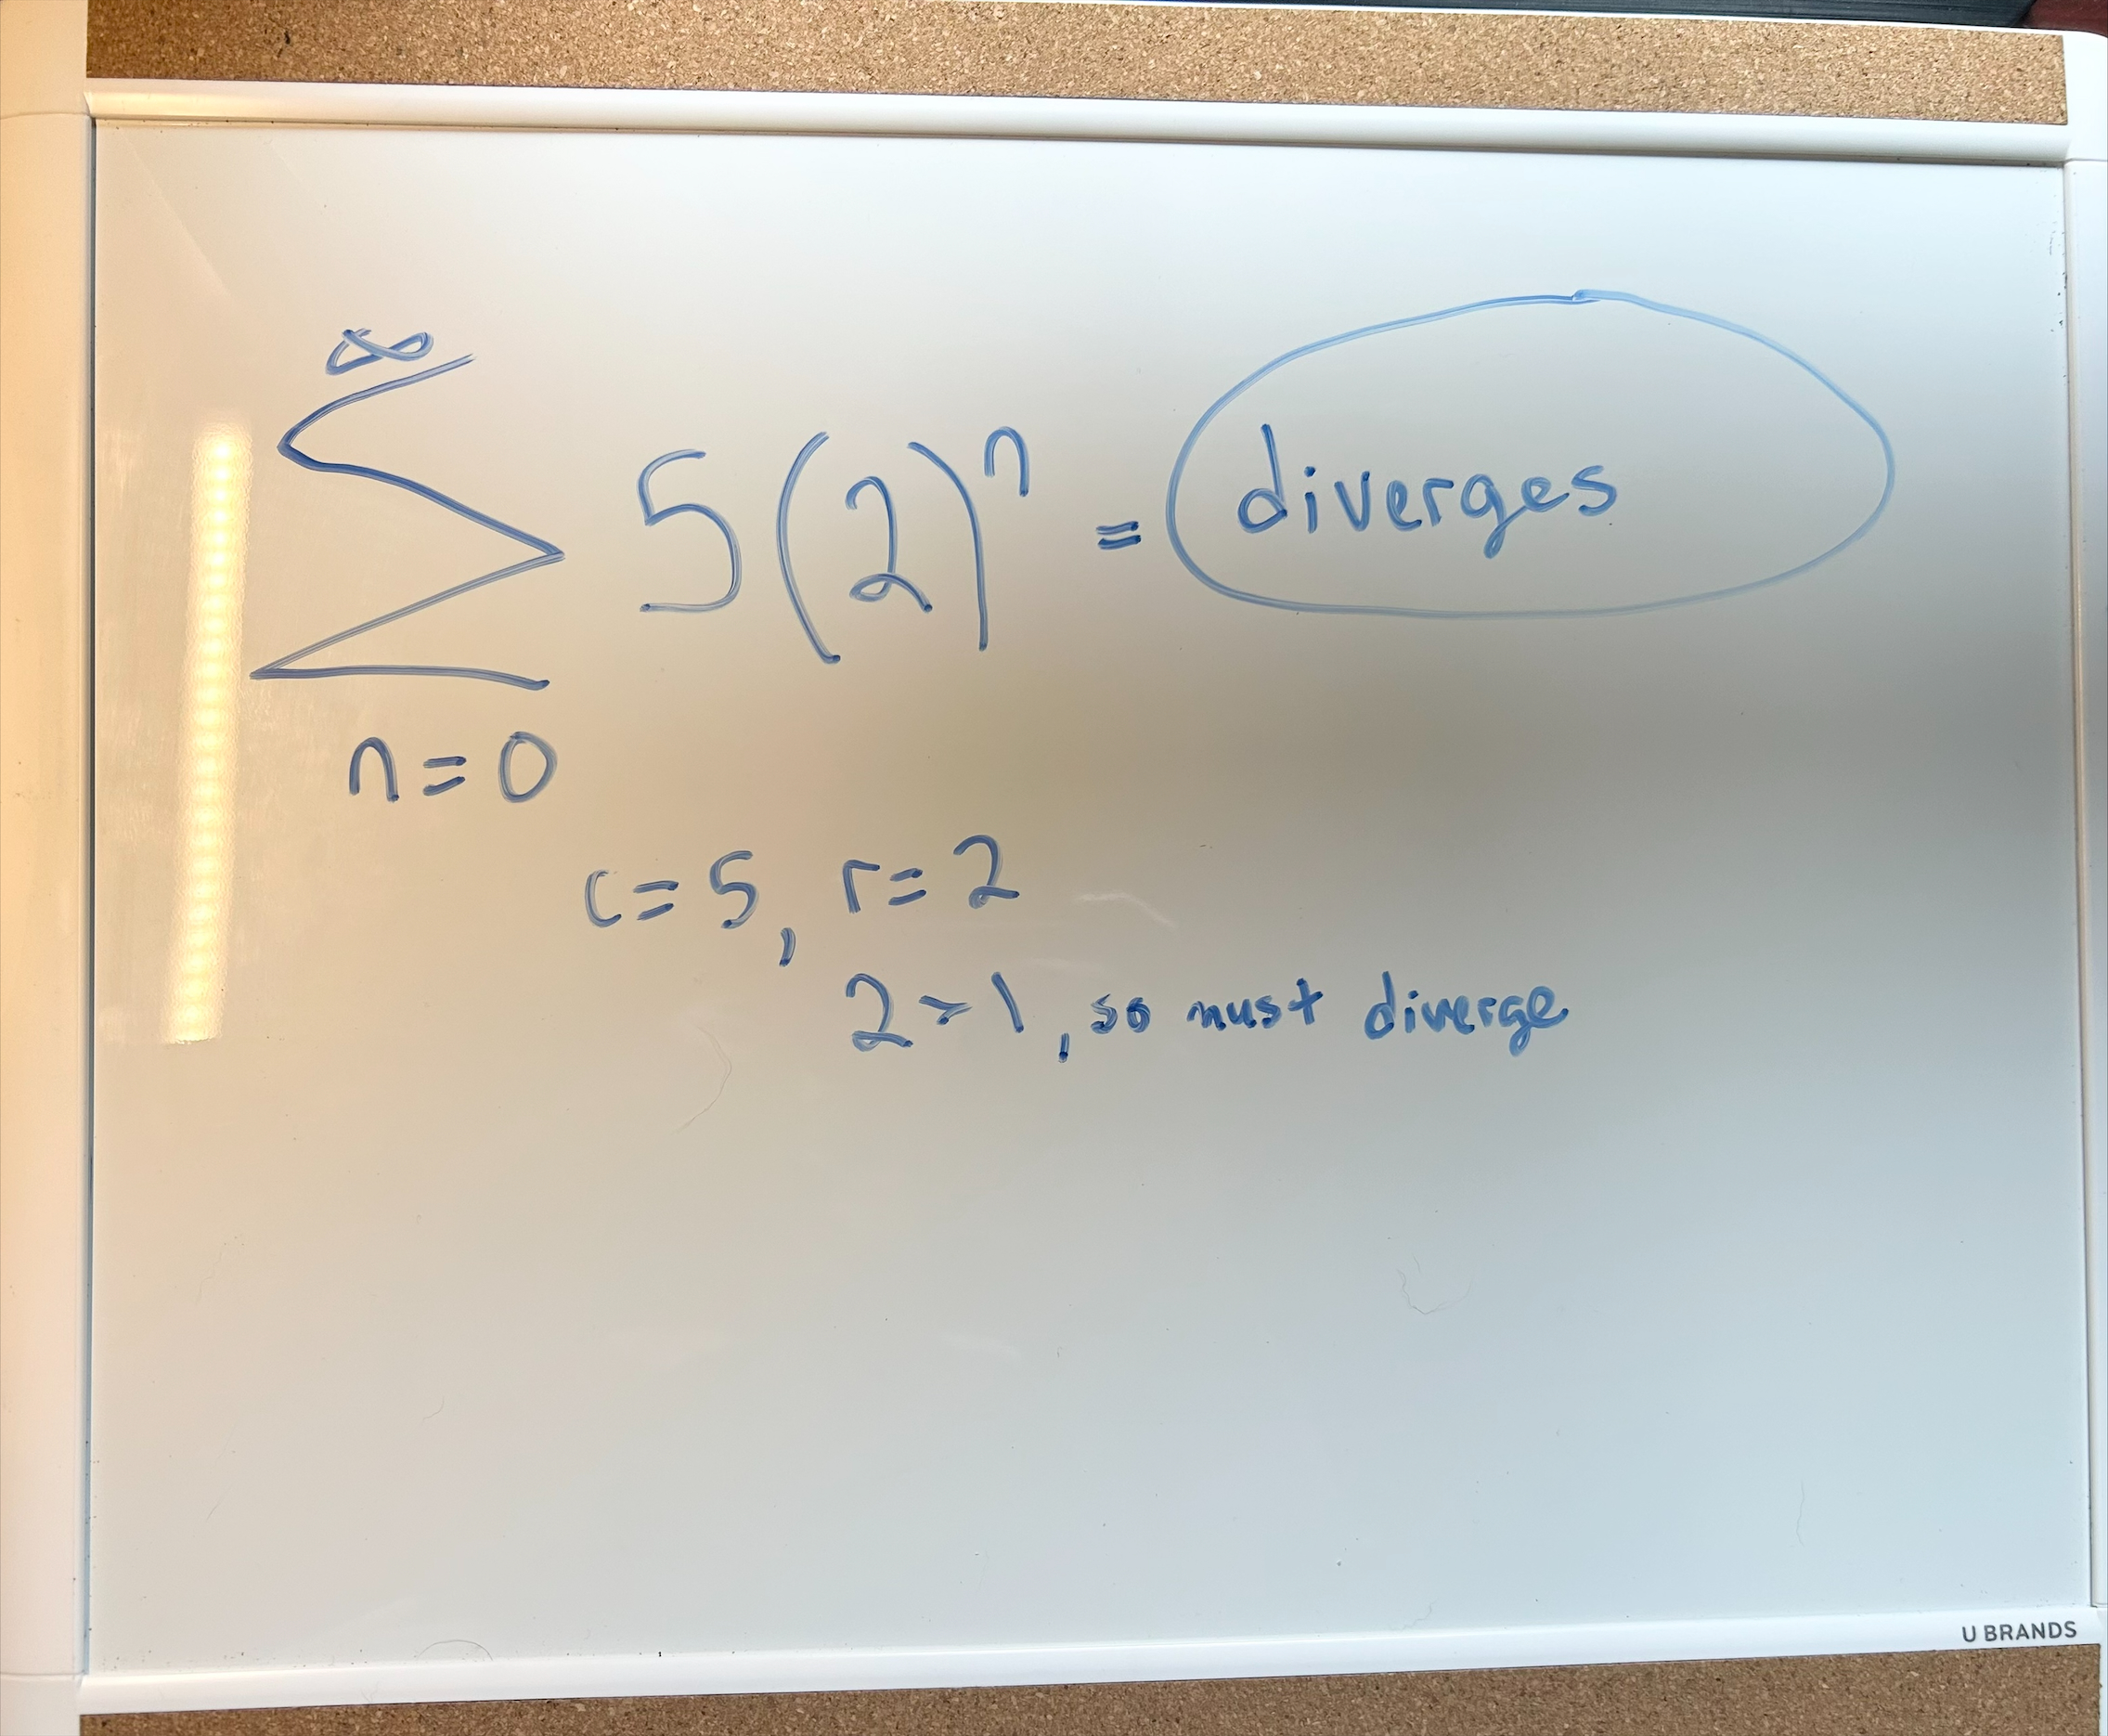 ∞
∑ 5(2)ⁿ = diverges
n=0
c=5, r=2
2>1, so must diverge
U BRANDS